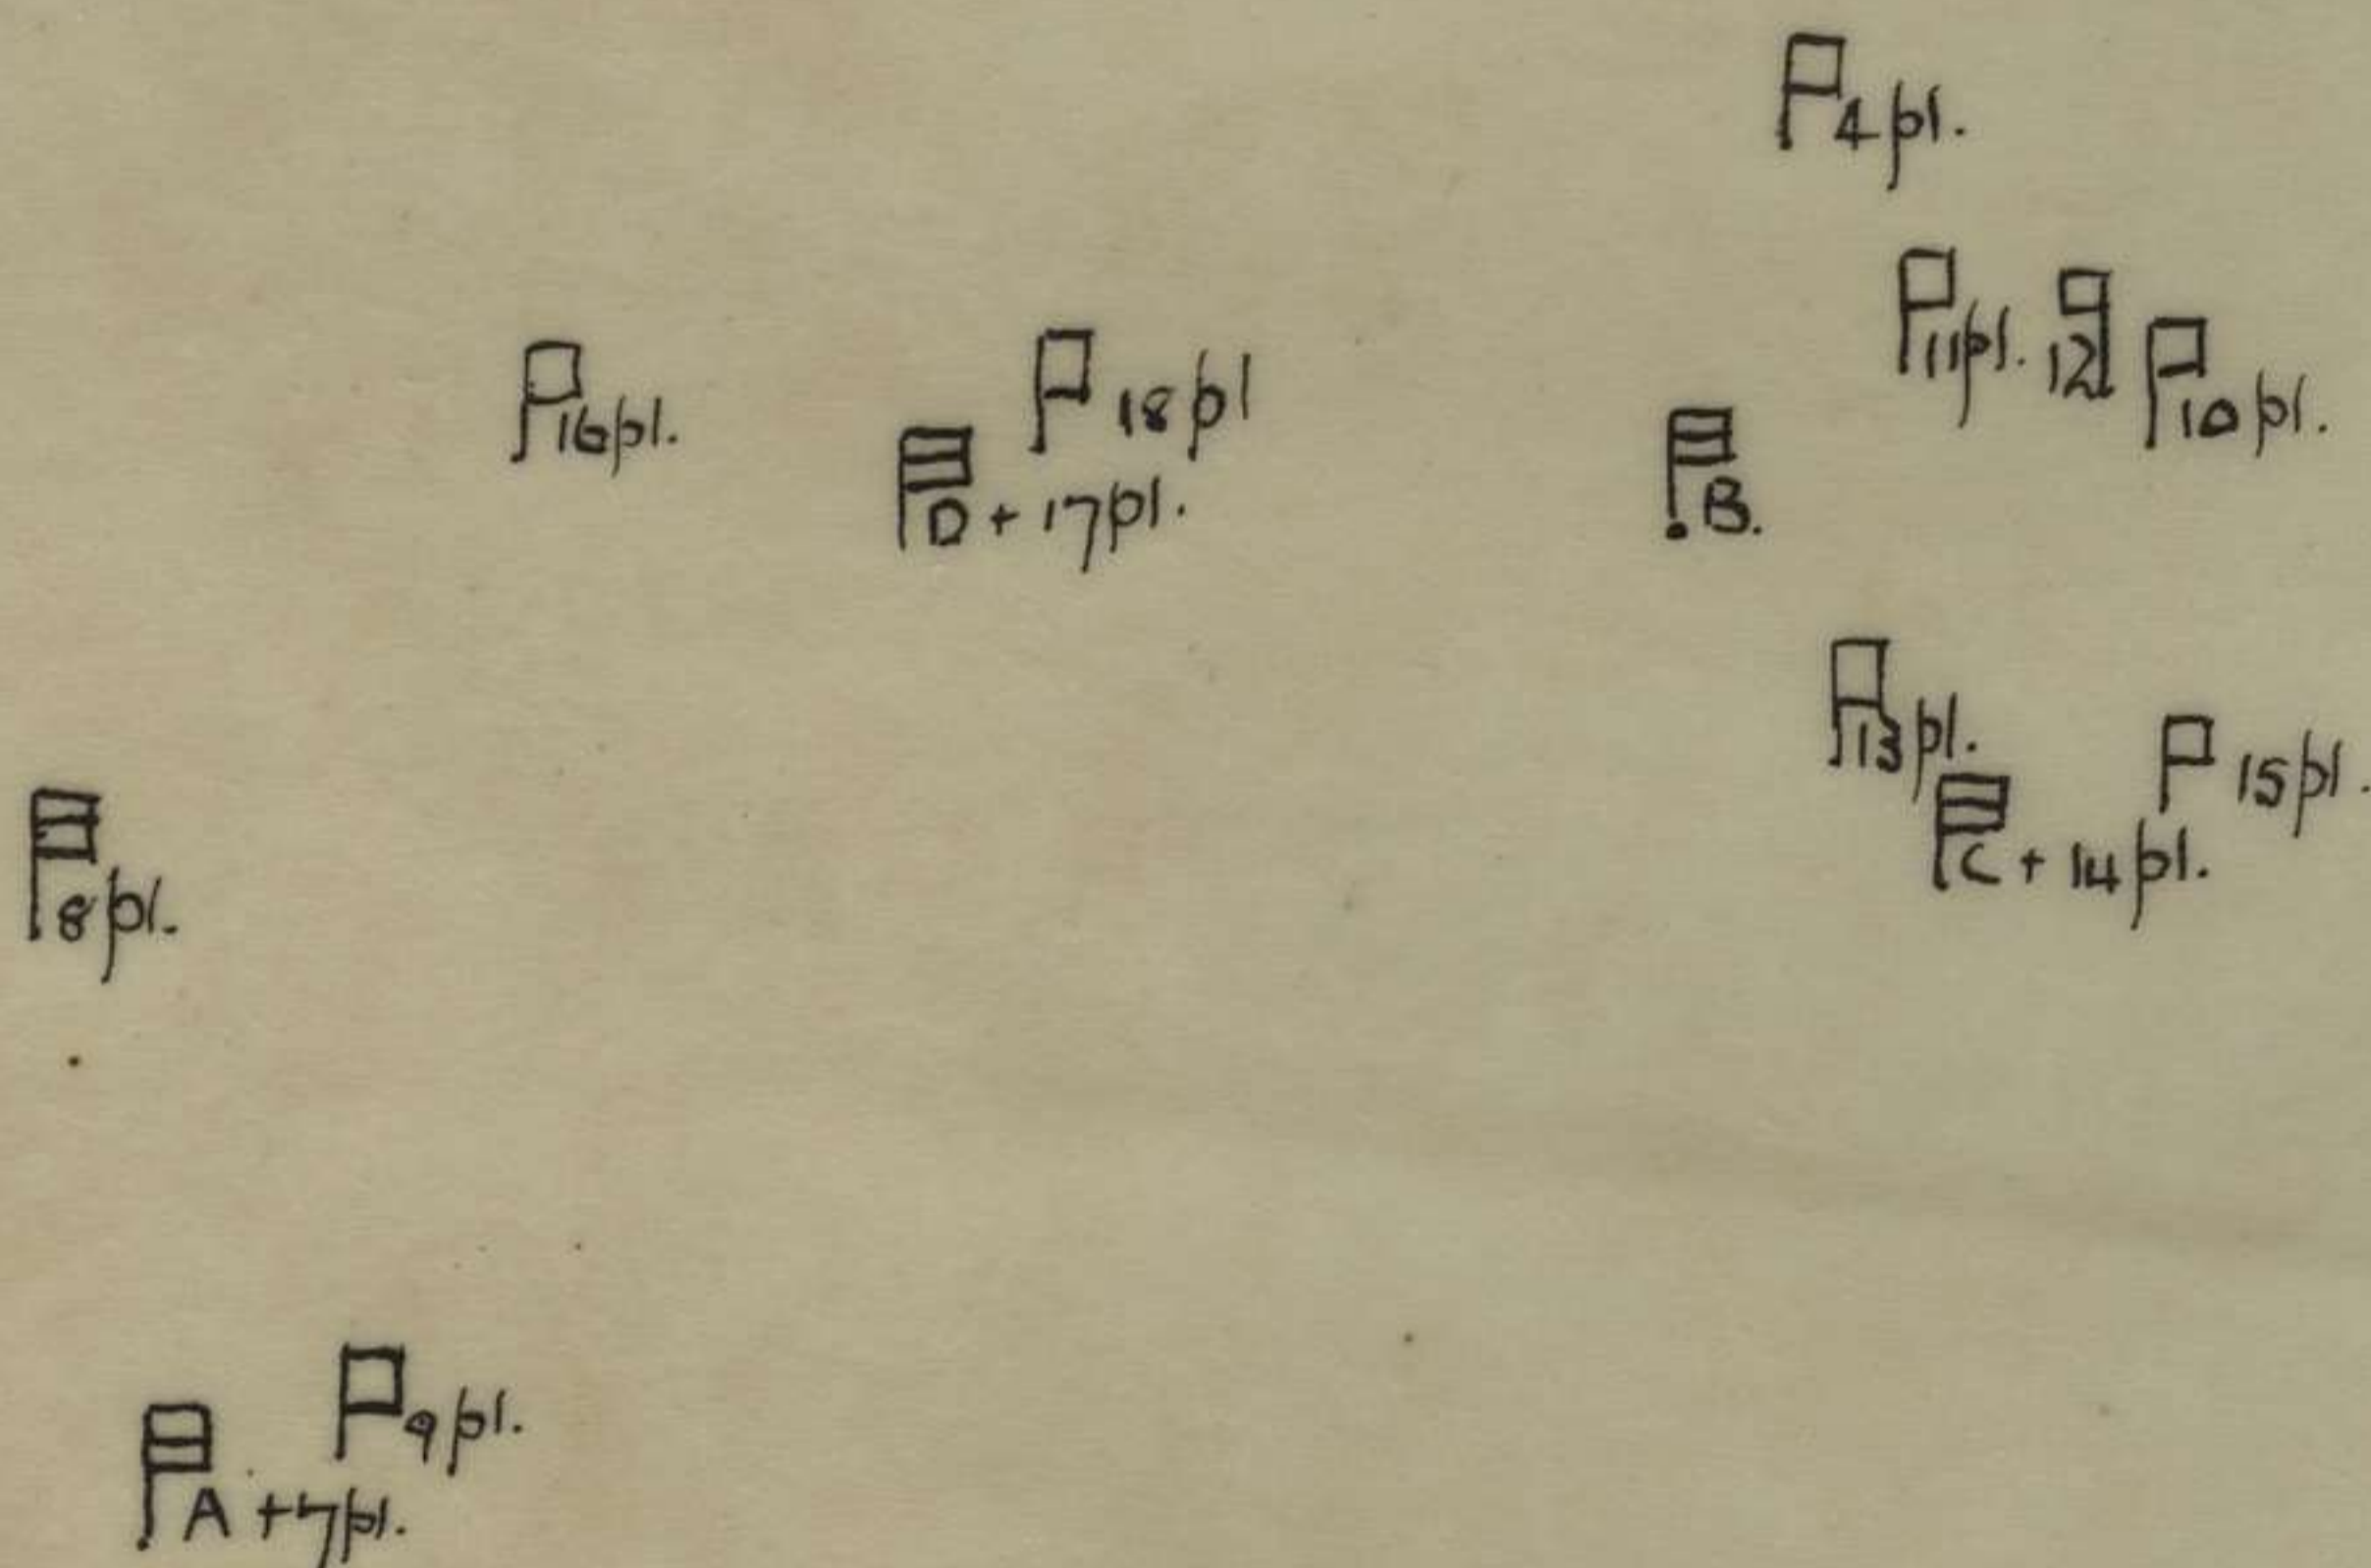 4 pl.
11 pl. 12 10 pl.
16 pl. 18 pl
D + 17 pl. B.
13 pl. 15 pl.
C + 14 pl.
8 pl.
9 pl.
A + 7 pl.